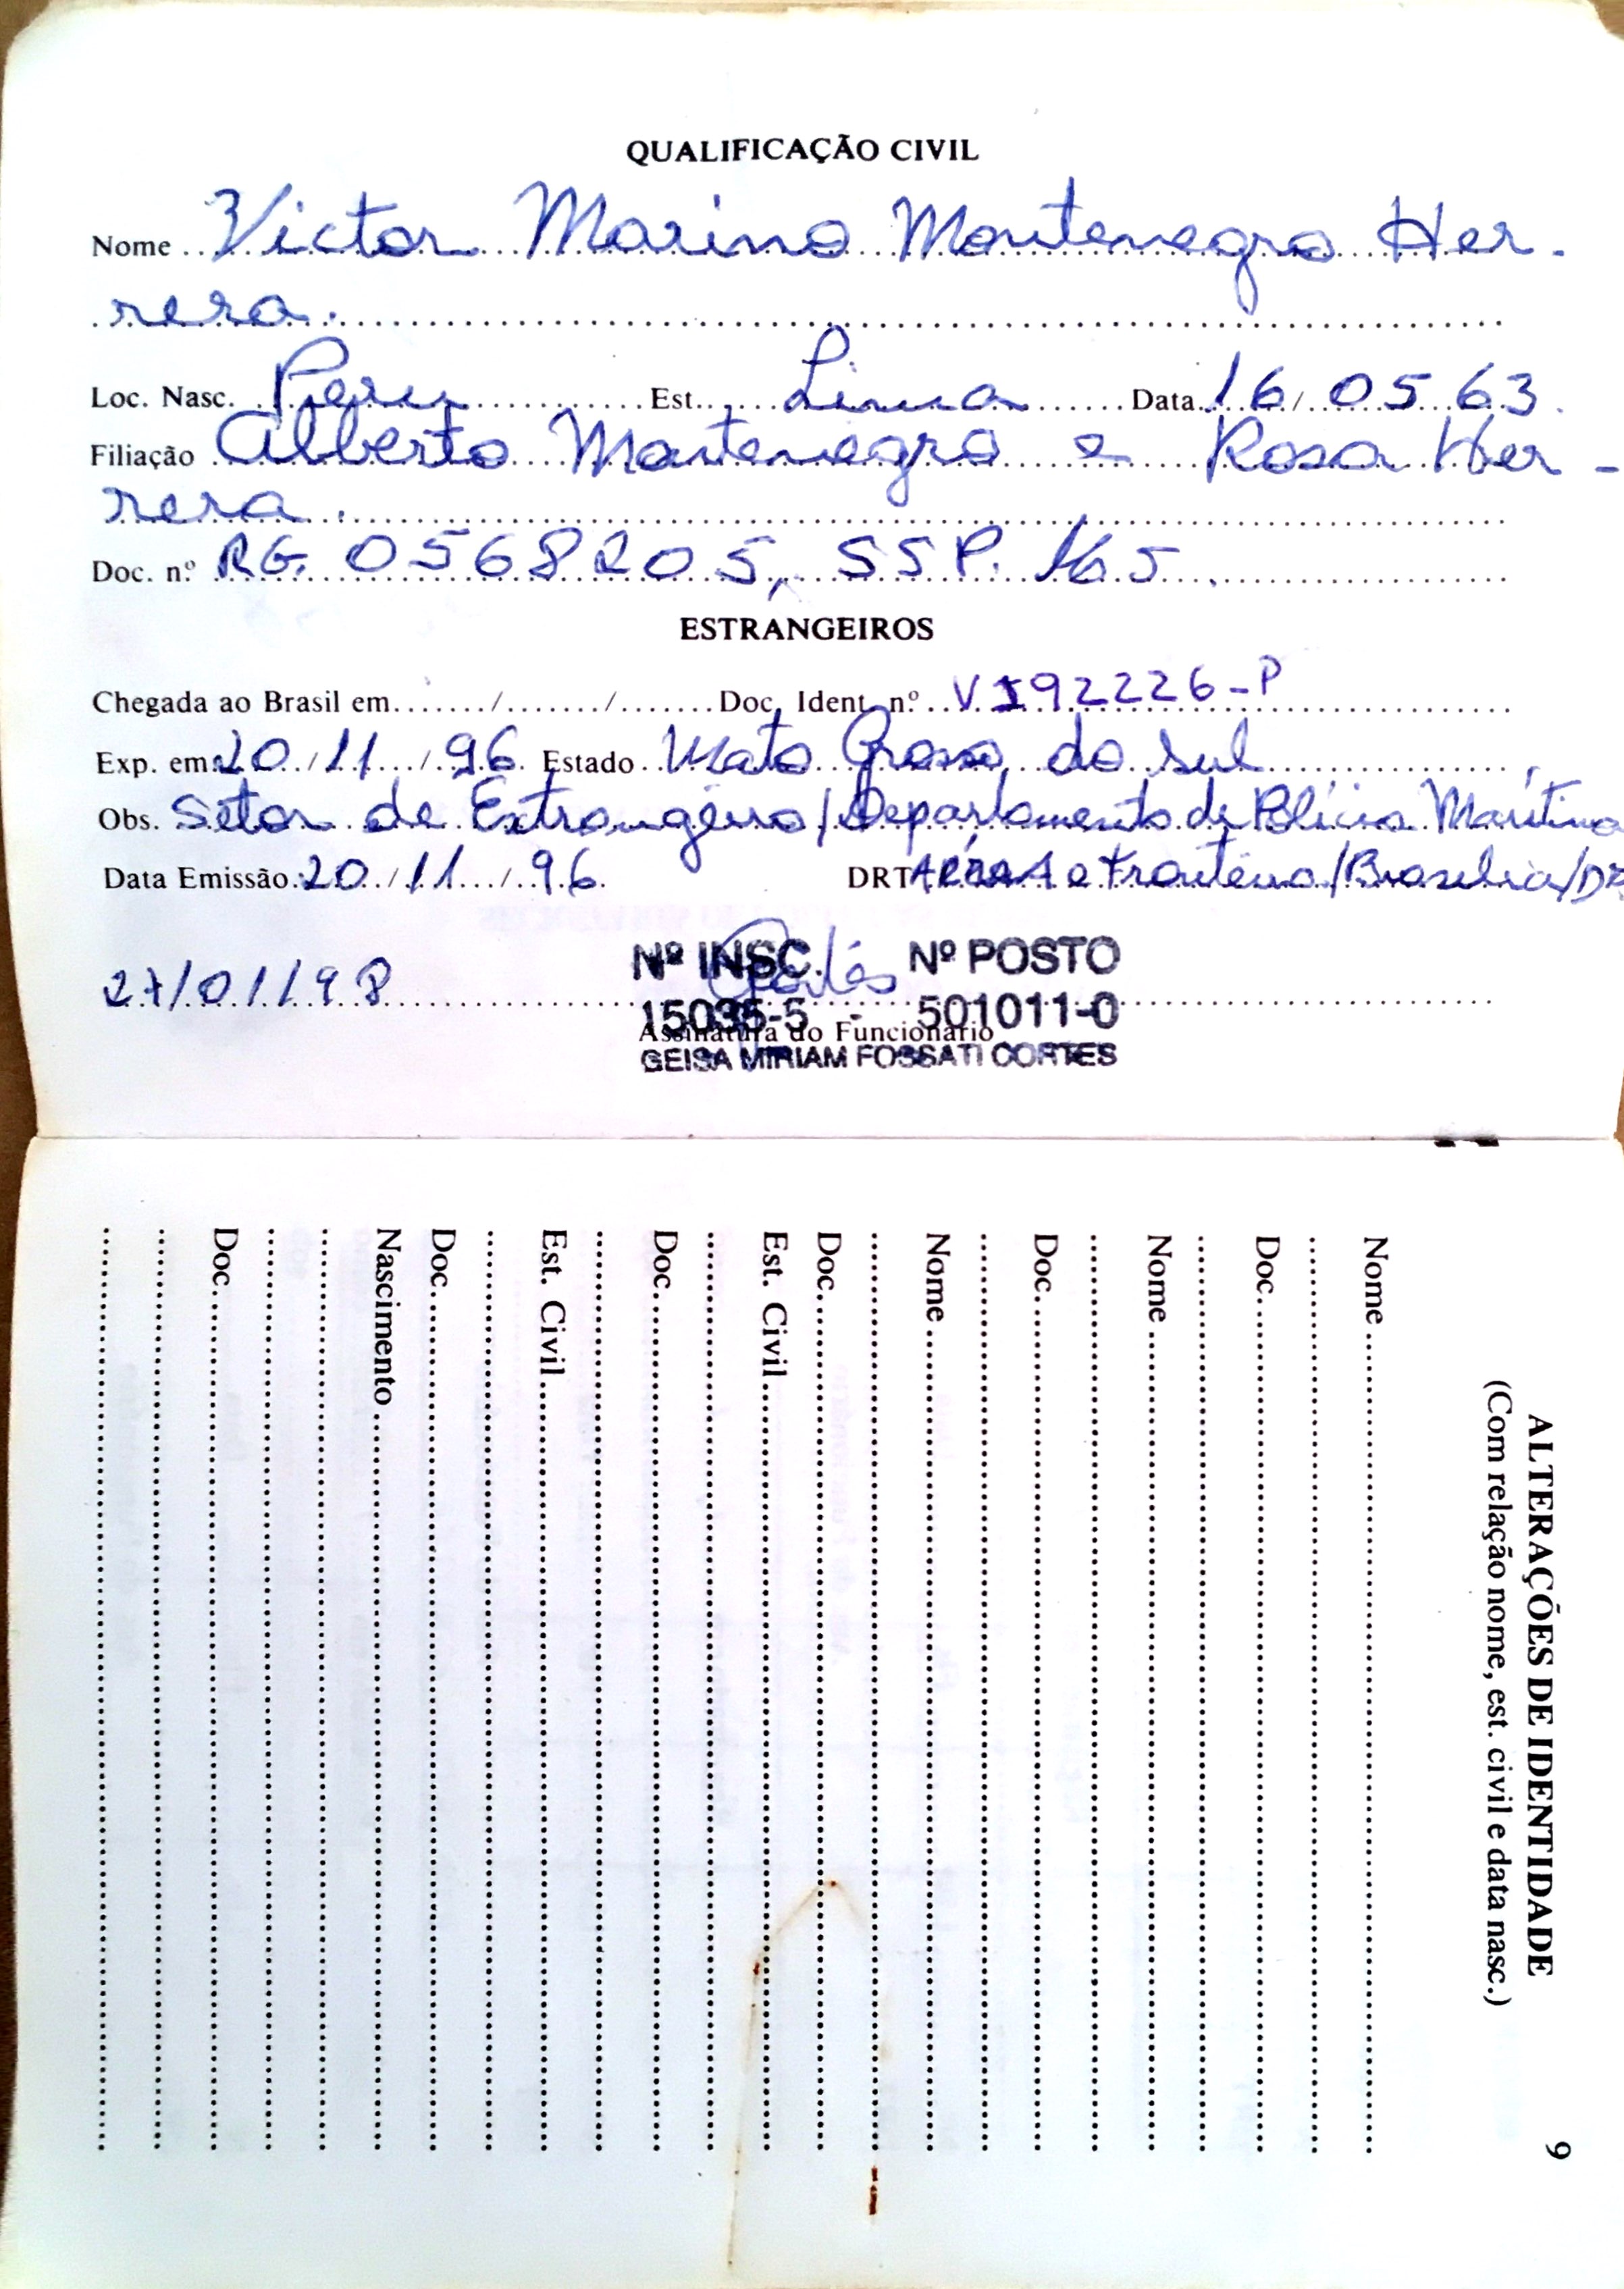 QUALIFICAÇÃO CIVIL
Nome Victor Marino Montenegro Her-
rera.
Loc. Nasc. Peru Est. Lima Data 16/05 63.
Filiação Alberto Montenegro e Rosa Her-
rera.
Doc. n.º RG. 0568205, SSP.
ESTRANGEIROS
Chegada ao Brasil em ....../......./....... Doc. Ident. n.º V192226-P
Exp. em 20/11/96 Estado Mato Grosso do Sul
Obs. Setor de Extrangeiro/Departamento de Polícia Marítima
Data Emissão 20/11/96. DRT Aérea e Fronteira/Brasília/DF
27/01/98
Nº INSC. Nº POSTO
15035-5 - 501011-0
Assinatura do Funcionário
GEISA MIRIAM FOSSATI CORTES
9
ALTERAÇÕES DE IDENTIDADE
(Com relação nome, est. civil e data nasc.)
Nome
Doc.
Nome
Doc.
Nome
Doc.
Est. Civil
Doc.
Est. Civil
Doc.
Nascimento
Doc.